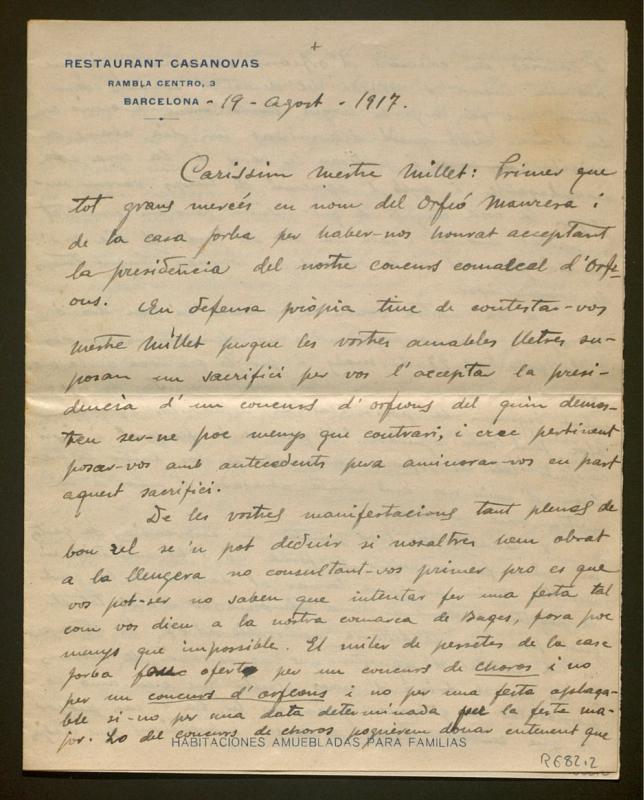 RESTAURANT CASANOVAS
RAMBLA CENTRO, 3
BARCELONA - 19 - Agost - 1917.
Caríssim mestre Millet: Primer que
tot grans mercés en nom del Orfeó Manresà i
de la casa Jorba per haber-nos honrat acceptant
la presidencia del nostre concurs comarcal d'Orfe-
ons. En defensa pròpia tinc de contestar-vos
mestre Millet perque les vostres amables lletres su-
posan un sacrifici per vos l'acceptar la presi-
dencia d'un concurs d'orfeons del quin demos-
treu ser-ne poc menys que contrari, i crec pertinent
posar-vos amb antecedents pera aminorar-vos en part
aquest sacrifici.
De les vostres manifestacions tant plenas de
bon zel se'n pot deduir si nosaltres hem obrat
a la lleugera no consultant-vos primer pro es que
vos pot-ser no saben que intentar fer una festa tal
com vos dieu a la nostra comarca de Bages, fora poc
menys que impossible. El miler de pessetes de la casa
Jorba oferta per un concurs de choros i no
per un concurs d'orfeons i no per una festa aplaça-
ble si-no per una data determinada per la festa ma-
jor. Lo del concurs de choros poguerem donar entenent que
HABITACIONES AMUEBLADAS PARA FAMILIAS
R682.2